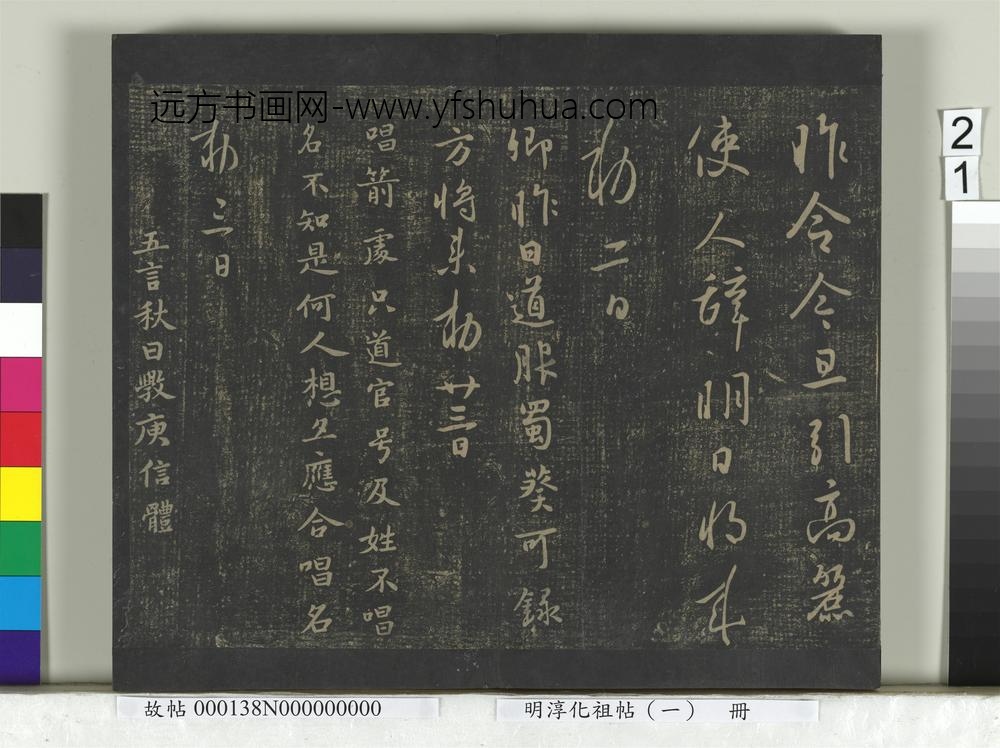 远方书画网-www.yfshuhua.com
昨令今旦引高麗
使人辞明日将来
勅二日
卿昨日道服蜀葵可錄
方將来勅廿三日
唱箭處只道官号及姓不唱
名不知是何人想应應合唱名
勅三日
五言秋日斅庾信體
2
1
故帖000138N000000000
明淳化祖帖（一） 冊